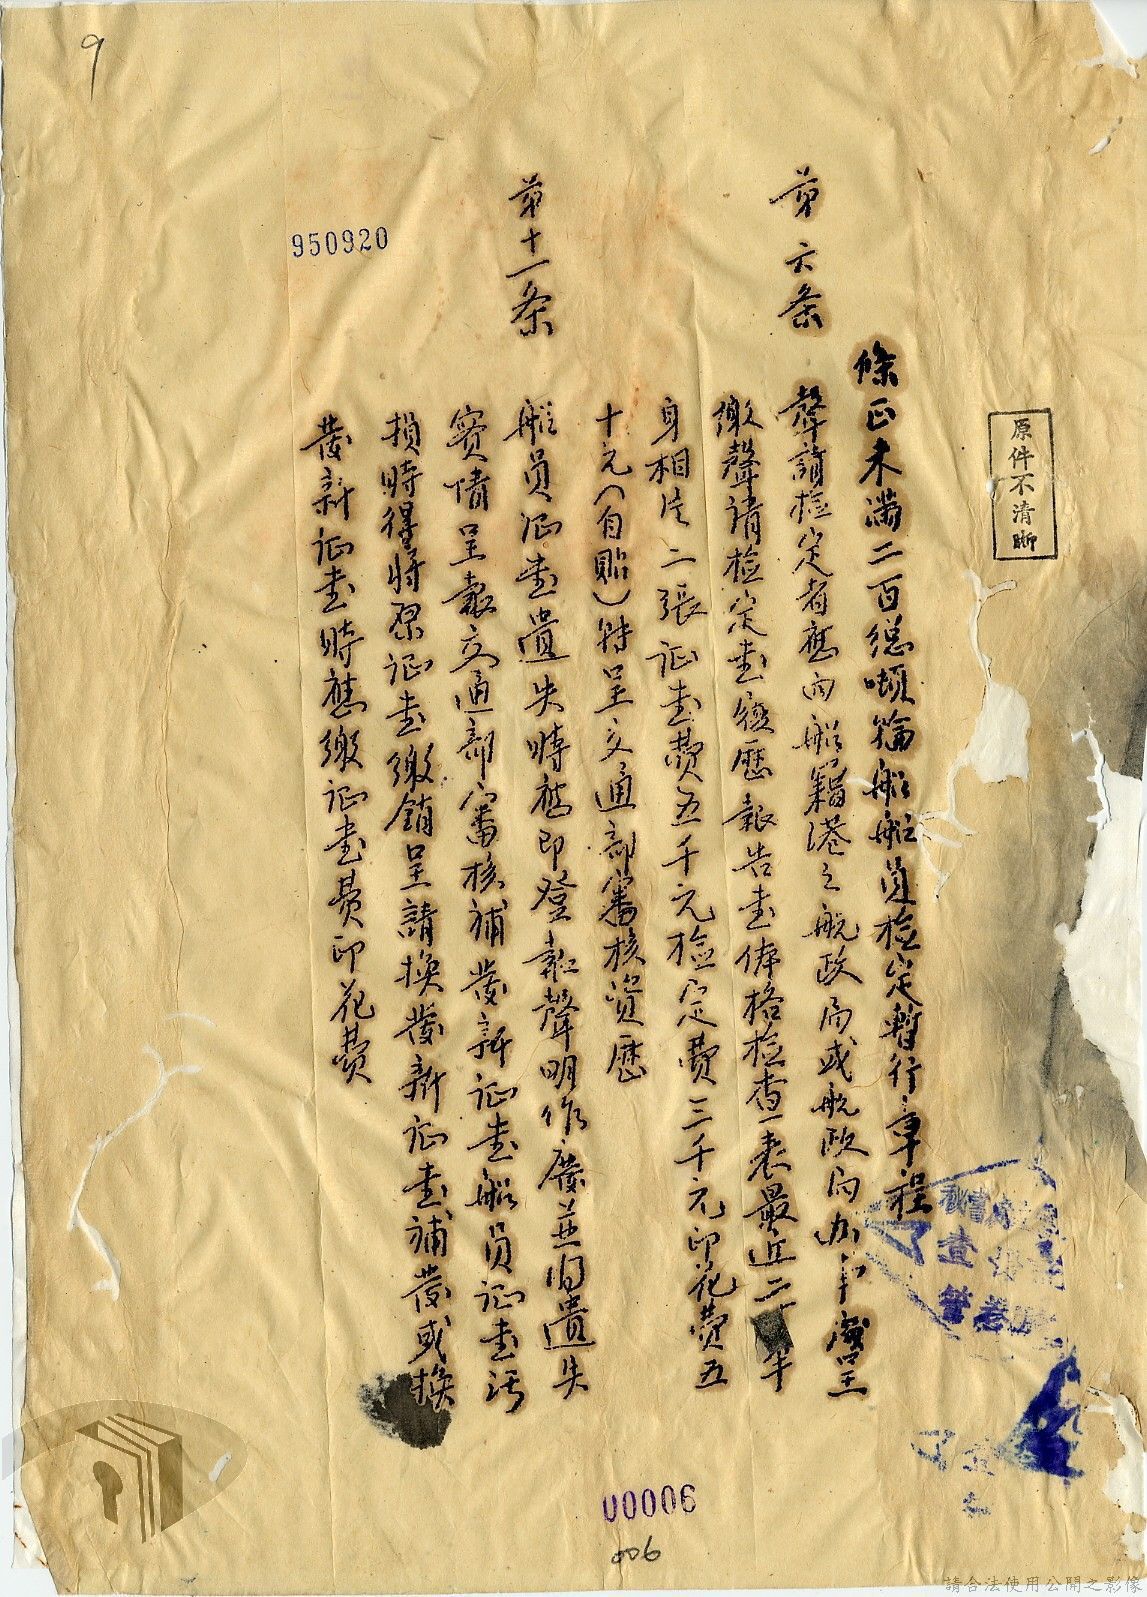 9
原件不清晰
修正未滿二百總噸輪船船員檢定暫行章程
第六条
聲請检定者應向船籍港之航政局或航政局办事處呈
繳聲請检定書履歷報告書体格检查表最近二年半
身相片二張证書費五千元检定費三千元印花費五
十元(自貼)转呈交通部審核資歷
第十一条
船員证書遺失時應即登報聲明作廢並将遺失
實情呈報交通部審核補發新证書船員证書污
損時得将原证書繳銷呈請換發新证書補發或換
發新证書時應繳证書費印花費
950920
00006
006
請合法使用公開之影像